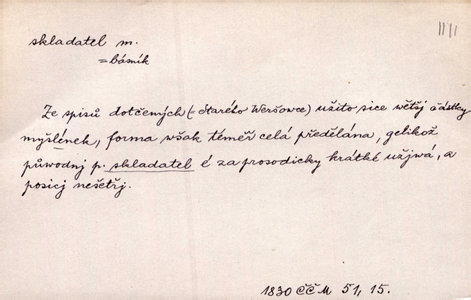 skladatel m.
= básník
Ze spisů dotčených (= Starého Weršowce) užito sice větší částky
myšlének, forma však téměř celá předělána, gelikož
půwodnj p. skladatel é za prosodicky krátké užjwá, a
posicj nešetřj.
1830 ČČM 51, 15.